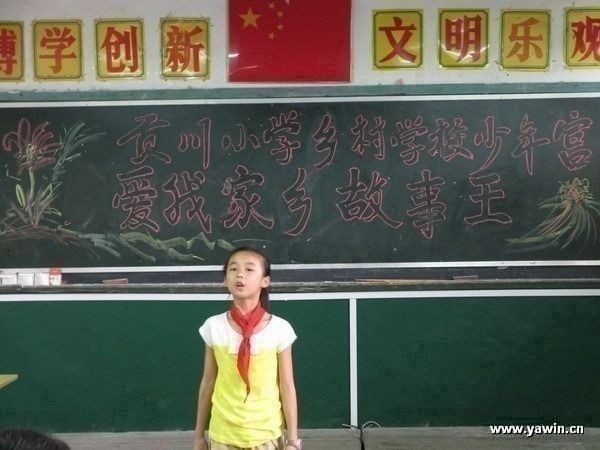 博学创新 文明乐观
贡川小学乡村学校少年宫
爱我家乡故事王
www.yawin.cn